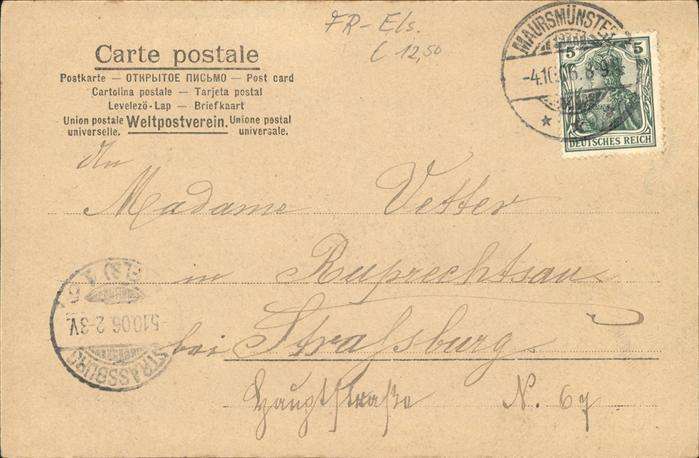 FR-Els.
12,50
Carte postale
Postkarte — ОТКРЫТОЕ ПИСЬМО — Post card
Cartolina postale — Tarjeta postal
Levelező-Lap — Briefkaart
Union postale universelle. Weltpostverein. Unione postal universale.
MAURSMÜNSTER
-4.10.06. 8-9
5 5
DEUTSCHES REICH
An
Madame Vetter
in Ruprechtsau
bei Straßburg
Hauptstraße N. 67
STRASSBURG
5.10.06. 2-3V.